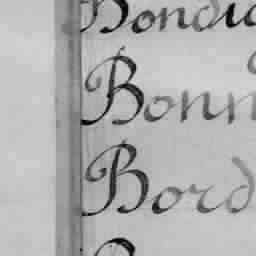 Bondia
Bonn
Bord